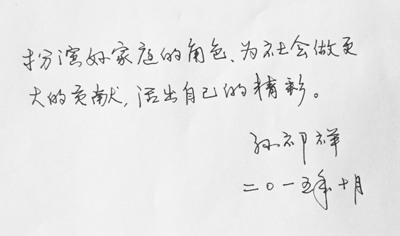 扮演好家庭的角色、为社会做更
大的贡献，活出自己的精彩。
孙祁祥
二〇一五年十月